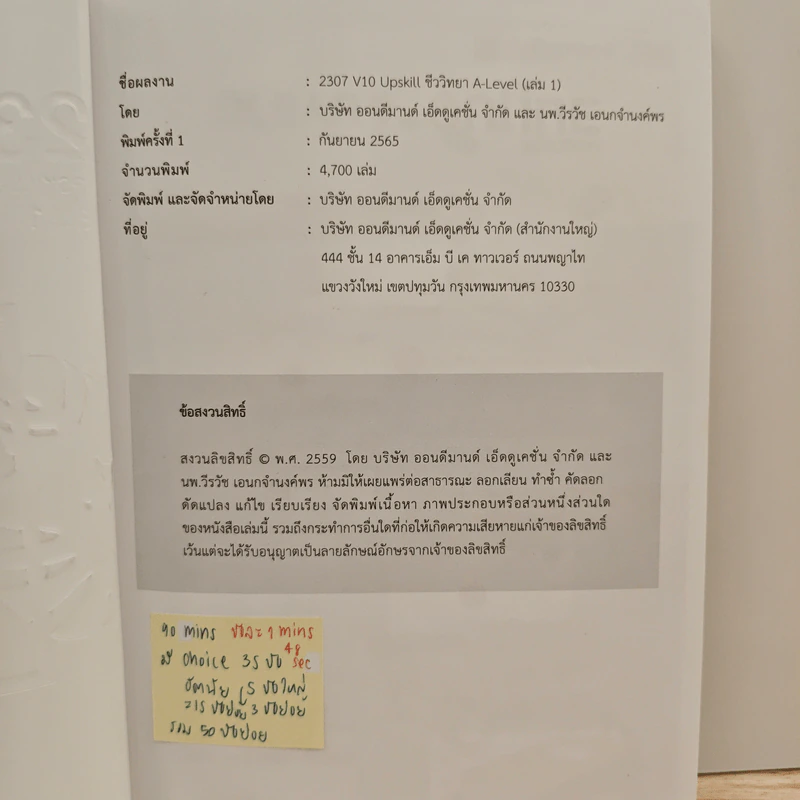 ชื่อผลงาน : 2307 V10 Upskill ชีววิทยา A-Level (เล่ม 1)
โดย : บริษัท ออนดีมานด์ เอ็ดดูเคชั่น จำกัด และ นพ.วีรวัช เอนกจำนงค์พร
พิมพ์ครั้งที่ 1 : กันยายน 2565
จำนวนพิมพ์ : 4,700 เล่ม
จัดพิมพ์ และจัดจำหน่ายโดย : บริษัท ออนดีมานด์ เอ็ดดูเคชั่น จำกัด
ที่อยู่ : บริษัท ออนดีมานด์ เอ็ดดูเคชั่น จำกัด (สำนักงานใหญ่)
444 ชั้น 14 อาคารเอ็ม บี เค ทาวเวอร์ ถนนพญาไท
แขวงวังใหม่ เขตปทุมวัน กรุงเทพมหานคร 10330
ข้อสงวนสิทธิ์
สงวนลิขสิทธิ์ © พ.ศ. 2559 โดย บริษัท ออนดีมานด์ เอ็ดดูเคชั่น จำกัด และ
นพ.วีรวัช เอนกจำนงค์พร ห้ามมิให้เผยแพร่ต่อสาธารณะ ลอกเลียน ทำซ้ำ คัดลอก
ดัดแปลง แก้ไข เรียบเรียง จัดพิมพ์เนื้อหา ภาพประกอบหรือส่วนหนึ่งส่วนใด
ของหนังสือเล่มนี้ รวมถึงกระทำการอื่นใดที่ก่อให้เกิดความเสียหายแก่เจ้าของลิขสิทธิ์
เว้นแต่จะได้รับอนุญาตเป็นลายลักษณ์อักษรจากเจ้าของลิขสิทธิ์
90 mins ข้อละ 1 mins
48 sec
มี choice 35 ข้อ
อัตนัย 5 ข้อใหญ่
=15 ข้อย่อย 3 ข้อย่อย
รวม 50 ข้อย่อย